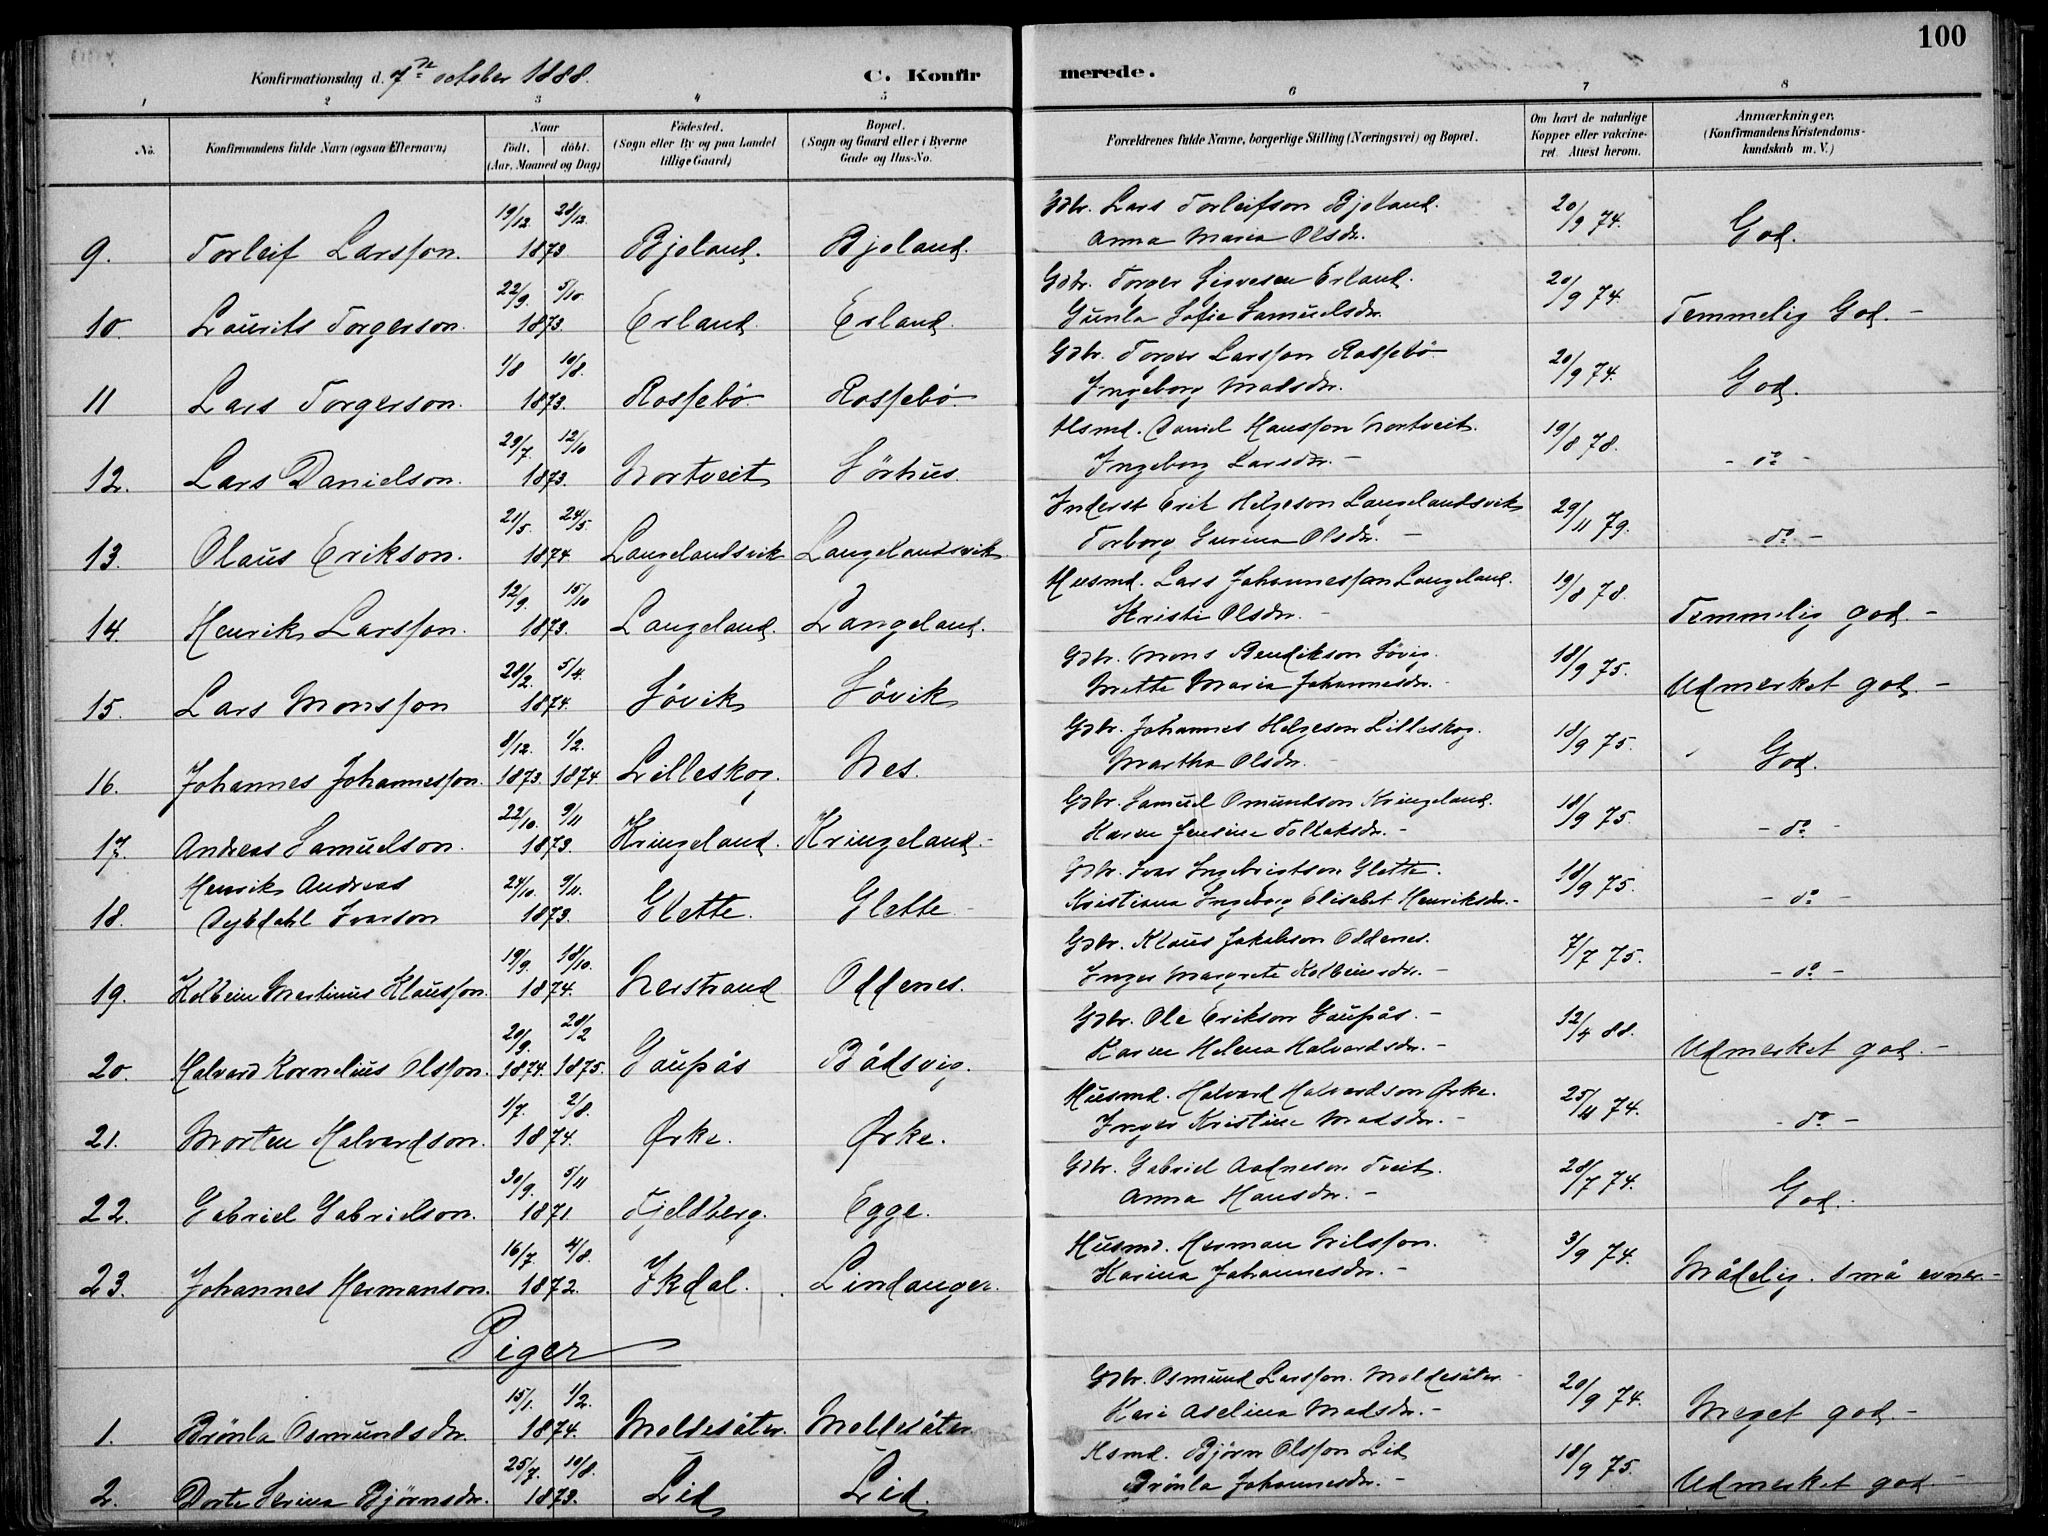 100
Konfirmationsdag d. 7de october 1888.
C. Konfirmerede.
1 2 3 4 5 6 7 8
No. Konfirmandens fulde Navn (ogsaa Efternavn) Naar født. døbt. (Aar, Maaned og Dag) Fødested. (Sogn eller By og paa Landet tillige Gaard) Bopæl. (Sogn og Gaard eller i Byerne Gade og Hus-No. Forældrenes fulde Navne, borgerlige Stilling (Næringsvei) og Bopæl. Om havt de naturlige Kopper eller vakcineret. Attest herom. Anmærkninger. (Konfirmandens Kristendomskundskab m. V.)
9. Torleif Larsson. 19/12. 28/12. 1873 Bjoland. Bjoland. Gdbr. Lars Torleifson Bjoland. Anna Maria Olsdr. 20/9 74. God.
10. Laurits Torgerson. 22/9. 5/10. 1873. Erland. Erland. Gdbr. Torger Sigvesen Erland. Gunla Sofie Samuelsdr. 20/9 74. Temmelig God. -
11 Lars Torgerson. 1/8 10/8. 1873. Rossebö Rossebö. Gdbr. Torger Larsson Rossebö Ingeborg Madsdr. 20/9 74. God.
12. Lars Danielson. 29/7. 12/10 1873. Nortveit Sörhus. Husmd. Daniel Hansson Nortveit. Ingeborg Larsdr. - 19/8 78. - do -
13. Olaus Erikson. 21/5. 24/5. 1874 Langelandsvik Langelandsvik Inderst Erik Helgeson Langelandsvik Torborg Gurina Olsdr. - 29/11 79. - do -
14. Henrik Larsson. 12/9. 15/10 1873. Langeland. Langeland. Husmd. Lars Johannesson Langeland. Kristi Olsdr. - 19/8 78. Temmelig god. -
15. Lars Monsson 28/2. 5/4. 1874. Sövik Sövik Gdbr. Mons Bendikson Sövig. Mette Maria Johannesdr. - 18/9 75. Udmerket god. -
16. Johannes Johannesson. 8/12. 1/2. 1873. 1874 Lilleskog. Nes. Gdbr. Johannes Helgeson Lilleskog. Martha Olsdr. - 18/9 75. God.
17. Andreas Samuelson. 22/10. 9/11 1873. Kringeland. Kringeland. - Gdbr. Samuel Omundson Kringeland. Karen Jensine Tollaksdr. - 18/9 75. - do -
18. Henrik Andreas Dybdahl Ivarson 24/10. 9/11. 1873. Glette. Glette - Gdbr. Ivar Ingebrigtson Glette. Kristiana Ingeborg Elisabet Henriksdr. - 18/9 75. - do -
19. Kolbein Martinus Klausson. 19/9. 18/10. 1874. Nerstrand Oddenes. Gdbr. Klaus Jakobson Oddenes. Inger Margrete Kolbeinsdr. - 7/7 75. - do -
20. Halvard Kornelius Olsson. 20/9. 28/2 1874. 1875. Gaupås Bådsvig. Gdbr. Ole Erikson Gaupås. - Karen Helena Halvardsdr. - 12/4 88. Udmerket god. -
21. Morten Halvardson. 1/7. 2/8. 1874. Ørke. Ørke. Husmd. Halvard Halvardson Ørke. Inger Kristine Madsdr. - 25/11 74. - do -
22. Gabriel Gabrielson. 30/9. 5/11 1871 Fjeldberg. Egge. Gdbr. Gabriel Aadneson Tveit. Anna Hansdr. - 28/7 74. God.
23. Johannes Hermanson. 16/7 4/8. 1872. Ikdal. Lindanger. Husmd. Herman Nilsson. Karina Johannesdr. - 3/9 74. Mådelig. små evner. -
Piger
1. Brönla Osmundsdr. 15/1. 1/2. 1874. Moldesäter. Moldesäter. Gdbr. Osmund Larsson Moldesäter - Kari Aselina Madsdr. - 20/9 74. Meget god. -
2. Dorte Serina Bjørnsdr. 25/7. 10/8. 1873. Lid Lid. Husmd. Bjørn Olsson Lid Brönla Johannesdr. - 18/9 75. Udmerket god. -